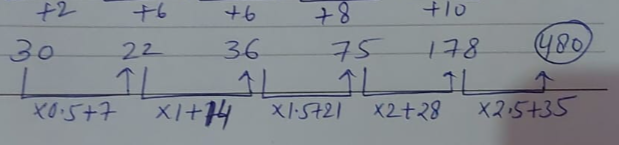 +2 +6 +6 +8 +10
30 22 36 75 178 480
×0.5+7 ×1+14 ×1.5+21 ×2+28 ×2.5+35